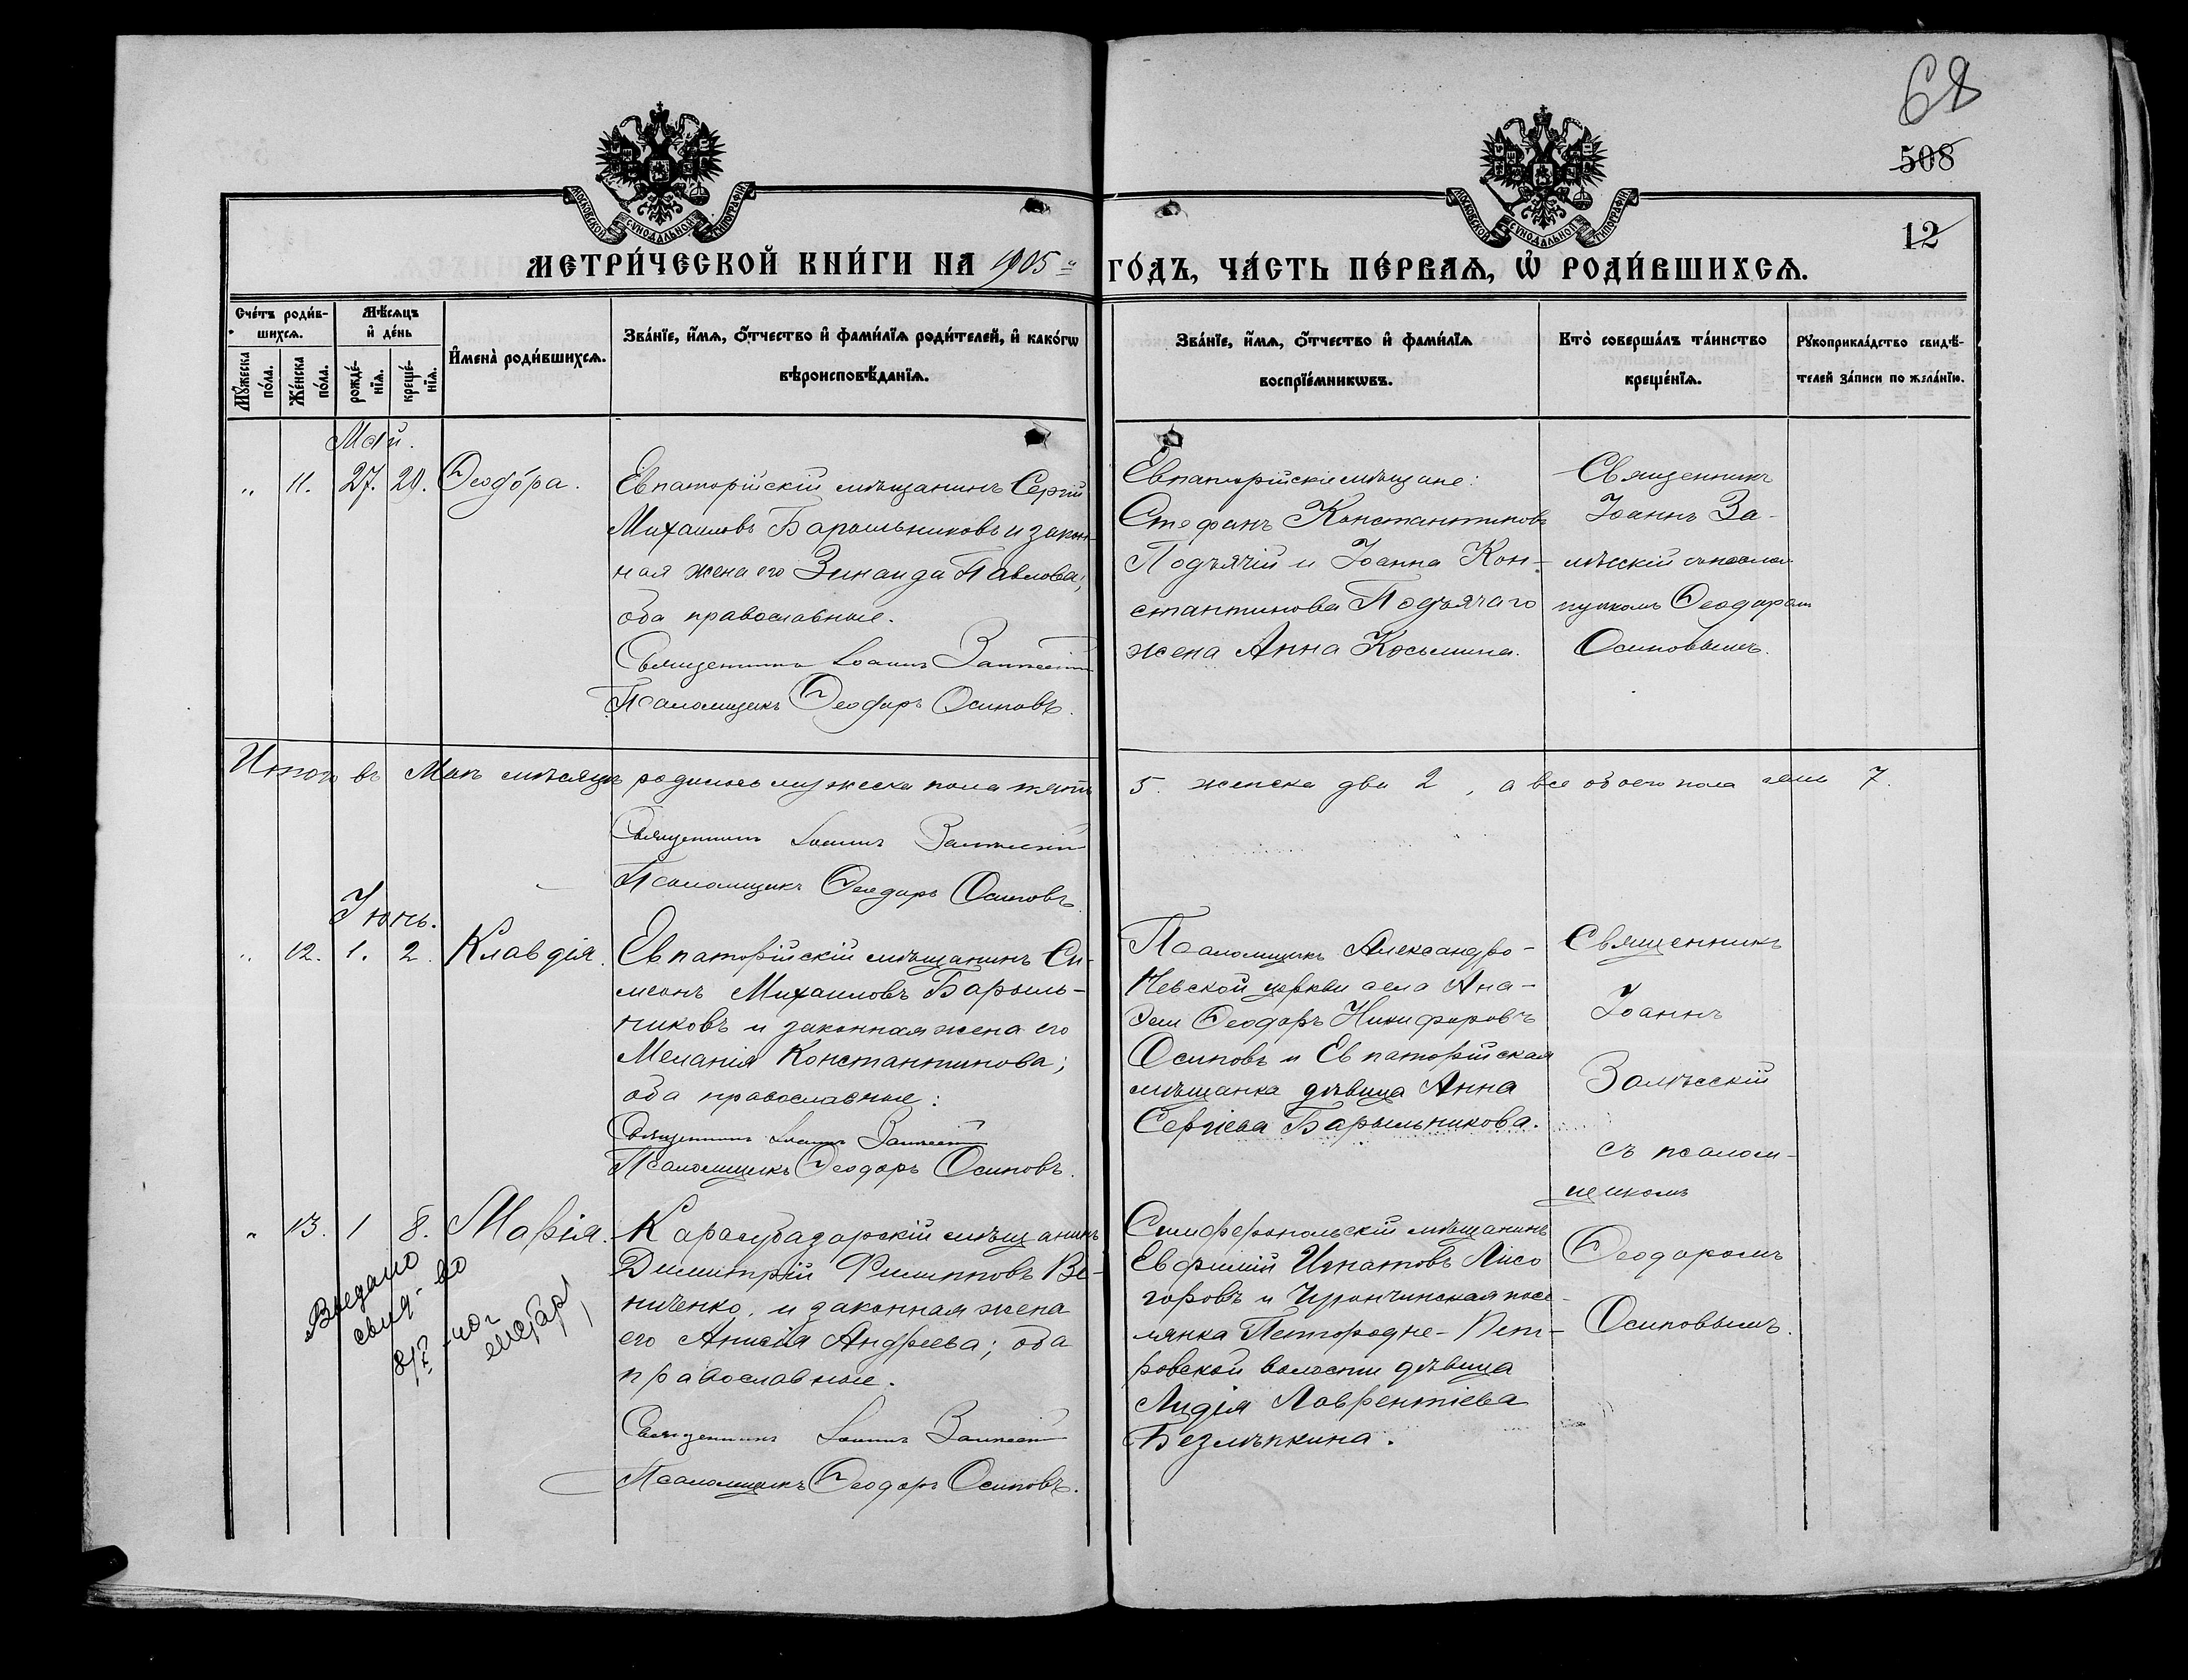 68
508
12
МОСКОВСКОЙ СѴНОДАЛЬНОЙ ТИПОГРАФІИ
МОСКОВСКОЙ СѴНОДАЛЬНОЙ ТИПОГРАФІИ
МЕТРИ́ЧЕСКОЙ КНИ́ГИ НА 1905
ГО́ДЪ, ЧА́СТЬ ПЕ́РВАѦ, Ѡ РОДИ́ВШИХСѦ.
Сче́тъ роди́в-
шихсѧ.
Мꙋ́жеска по́ла.
Же́нска по́ла.
Мѣ́сѧцъ
и҆ де́нь
рожде́-нїѧ.
креще́-нїѧ.
И҆мена̀ роди́вшихсѧ.
Зва́нїе, и҆́мѧ, ѻ҆́тчество и҆ фами́лїѧ роди́телей, и҆ како́гѡ
вѣроисповѣ́данїѧ.
Зва́нїе, и҆́мѧ, ѻ҆́тчество и҆ фами́лїѧ
воспрїе́мникѡвъ.
Кто̀ соверша́лъ та́инство
креще́нїѧ.
Рꙋкоприкла́дство свидѣ́-
телей за́писи по жела́нїю.
Май.
" 11. 27. 29. Ѳеодо́ра.
Евпаторійскій мѣщанинъ Сергій
Михаиловъ Барыльниковъ и закон-
ная жена его Зинаида Павлова,
оба православные.
Священникъ Іоаннъ Залѣсскій
Псаломщикъ Ѳеодоръ Осиповъ.
Евпаторійскіе мѣщане:
Стефанъ Константиновъ
Подъячій и Іоанна Кон-
стантинова Подъячаго
жена Анна Косьмина.
Священникъ
Іоаннъ За-
лѣсскій съ псалом-
щикомъ Ѳеодоромъ
Осиповымъ.
Итого въ Маѣ мѣсяцѣ родилось мужеска пола пять
5. женска два 2, а все обоего пола семь 7.
Священникъ Іоаннъ Залѣсскій
Псаломщикъ Ѳеодоръ Осиповъ.
Іюнь.
" 12. 1. 2. Клавдія.
Евпаторійскій мѣщанинъ Си-
меонъ Михаиловъ Барыль-
никовъ и законная жена его
Меланія Константинова;
оба православные:
Священникъ Іоаннъ Залѣсскій
Псаломщикъ Ѳеодоръ Осиповъ.
Псаломщикъ Александро-
Невской церкви села Ана-
Эли Ѳеодоръ Никифоровъ
Осиповъ и Евпаторійская
мѣщанка дѣвица Анна
Сергіева Барыльникова.
Священникъ
Іоаннъ
Залѣсскій
съ псалом-
щикомъ
Ѳеодоромъ
Осиповымъ.
" 13. 1 8. Марія.
Карасубазарскій мѣщанинъ
Димитрій Филипповъ Ве-
ниченко, и законная жена
его Анисія Андреева; оба
православные.
Священникъ Іоаннъ Залѣсскій
Псаломщикъ Ѳеодоръ Осиповъ.
Симферопольскій мѣщанинъ
Евфимій Игнатовъ Лисо
горовъ и посе-
лянка Петровской волости дѣвица
Лидія Лаврентіева
Безлѣпкина.